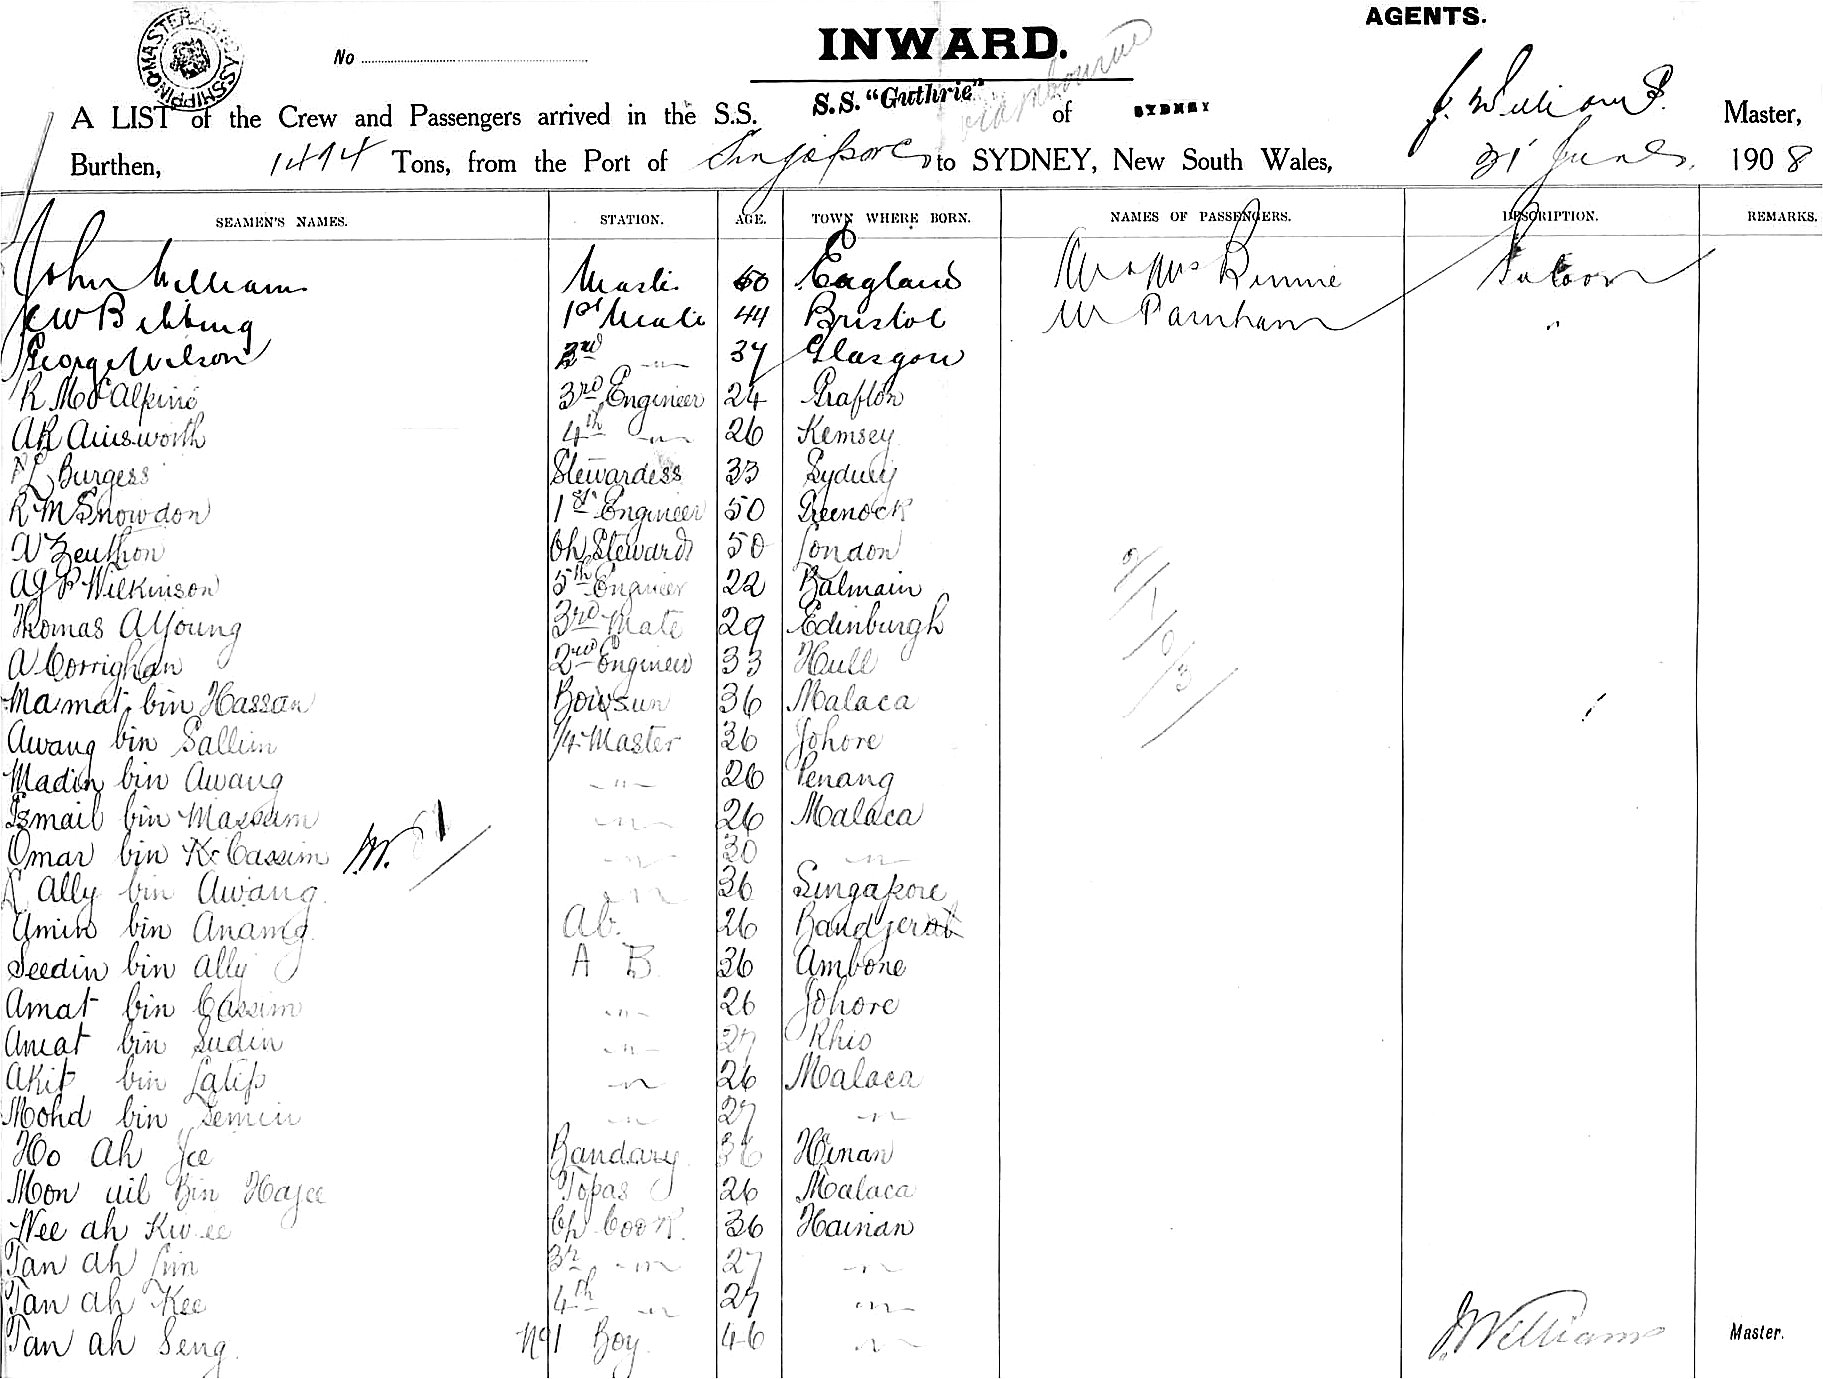 AGENTS.
MASTER SHIPPING SYDNEY
No
INWARD.
S.S. "Guthrie"
A LIST of the Crew and Passengers arrived in the S.S. of SYDNEY J. Williams Master,
Burthen, 1494 Tons, from the Port of Singapore to SYDNEY, New South Wales, 31 1908
SEAMEN'S NAMES. STATION. AGE. TOWN WHERE BORN. NAMES OF PASSENGERS. DESCRIPTION. REMARKS.
John Williams Master 50 England Mr & Mrs Rennie Saloon
1st Mate 44 Bristol Mr Parnham "
George Wilson 2nd " 37 Glasgow
R McAlpine 3rd Engineer 24 Grafton
AR Ainsworth 4th " 26 Kemsey
Burgess Stewardess 33 Sydney
R M Snowdon 1st Engineer 50 Greenock
Zeuthon Ch Steward 50 London
AJP Wilkinson 5th Engineer 22 Balmain
Thomas A Young 3rd Mate 29 Edinburgh
A Corrighan 2nd Engineer 33 Hull
Mamat bin Hassan Bowsun 36 Malaca
Awang bin Sallim 1/4 Master 36 Johore
Madin bin Awang " 26 Penang
Ismail bin Massim " 26 Malaca
Omar bin K. Cassim " 30 "
Ally bin Awang " 36 Singapore
Amin bin Anamg Ab. 26
Seedin bin Ally A B 36 Ambone
Amat bin Cassim " 26 Johore
Amat bin Sudin " 27 Rhio
Akip bin Latip " 26 Malaca
Mohd bin Semin " 27 "
Ho Ah Jee Bandary 36 Hinan
Mon uil Bin Hajee Topas 26 Malaca
Wee ah Kwee Ch Cook 36 Hainan
Tan ah Lim 3rd " 27 "
Tan ah Kee 4th " 27 "
Tan ah Seng No 1 Boy 46 "
J Williams Master.